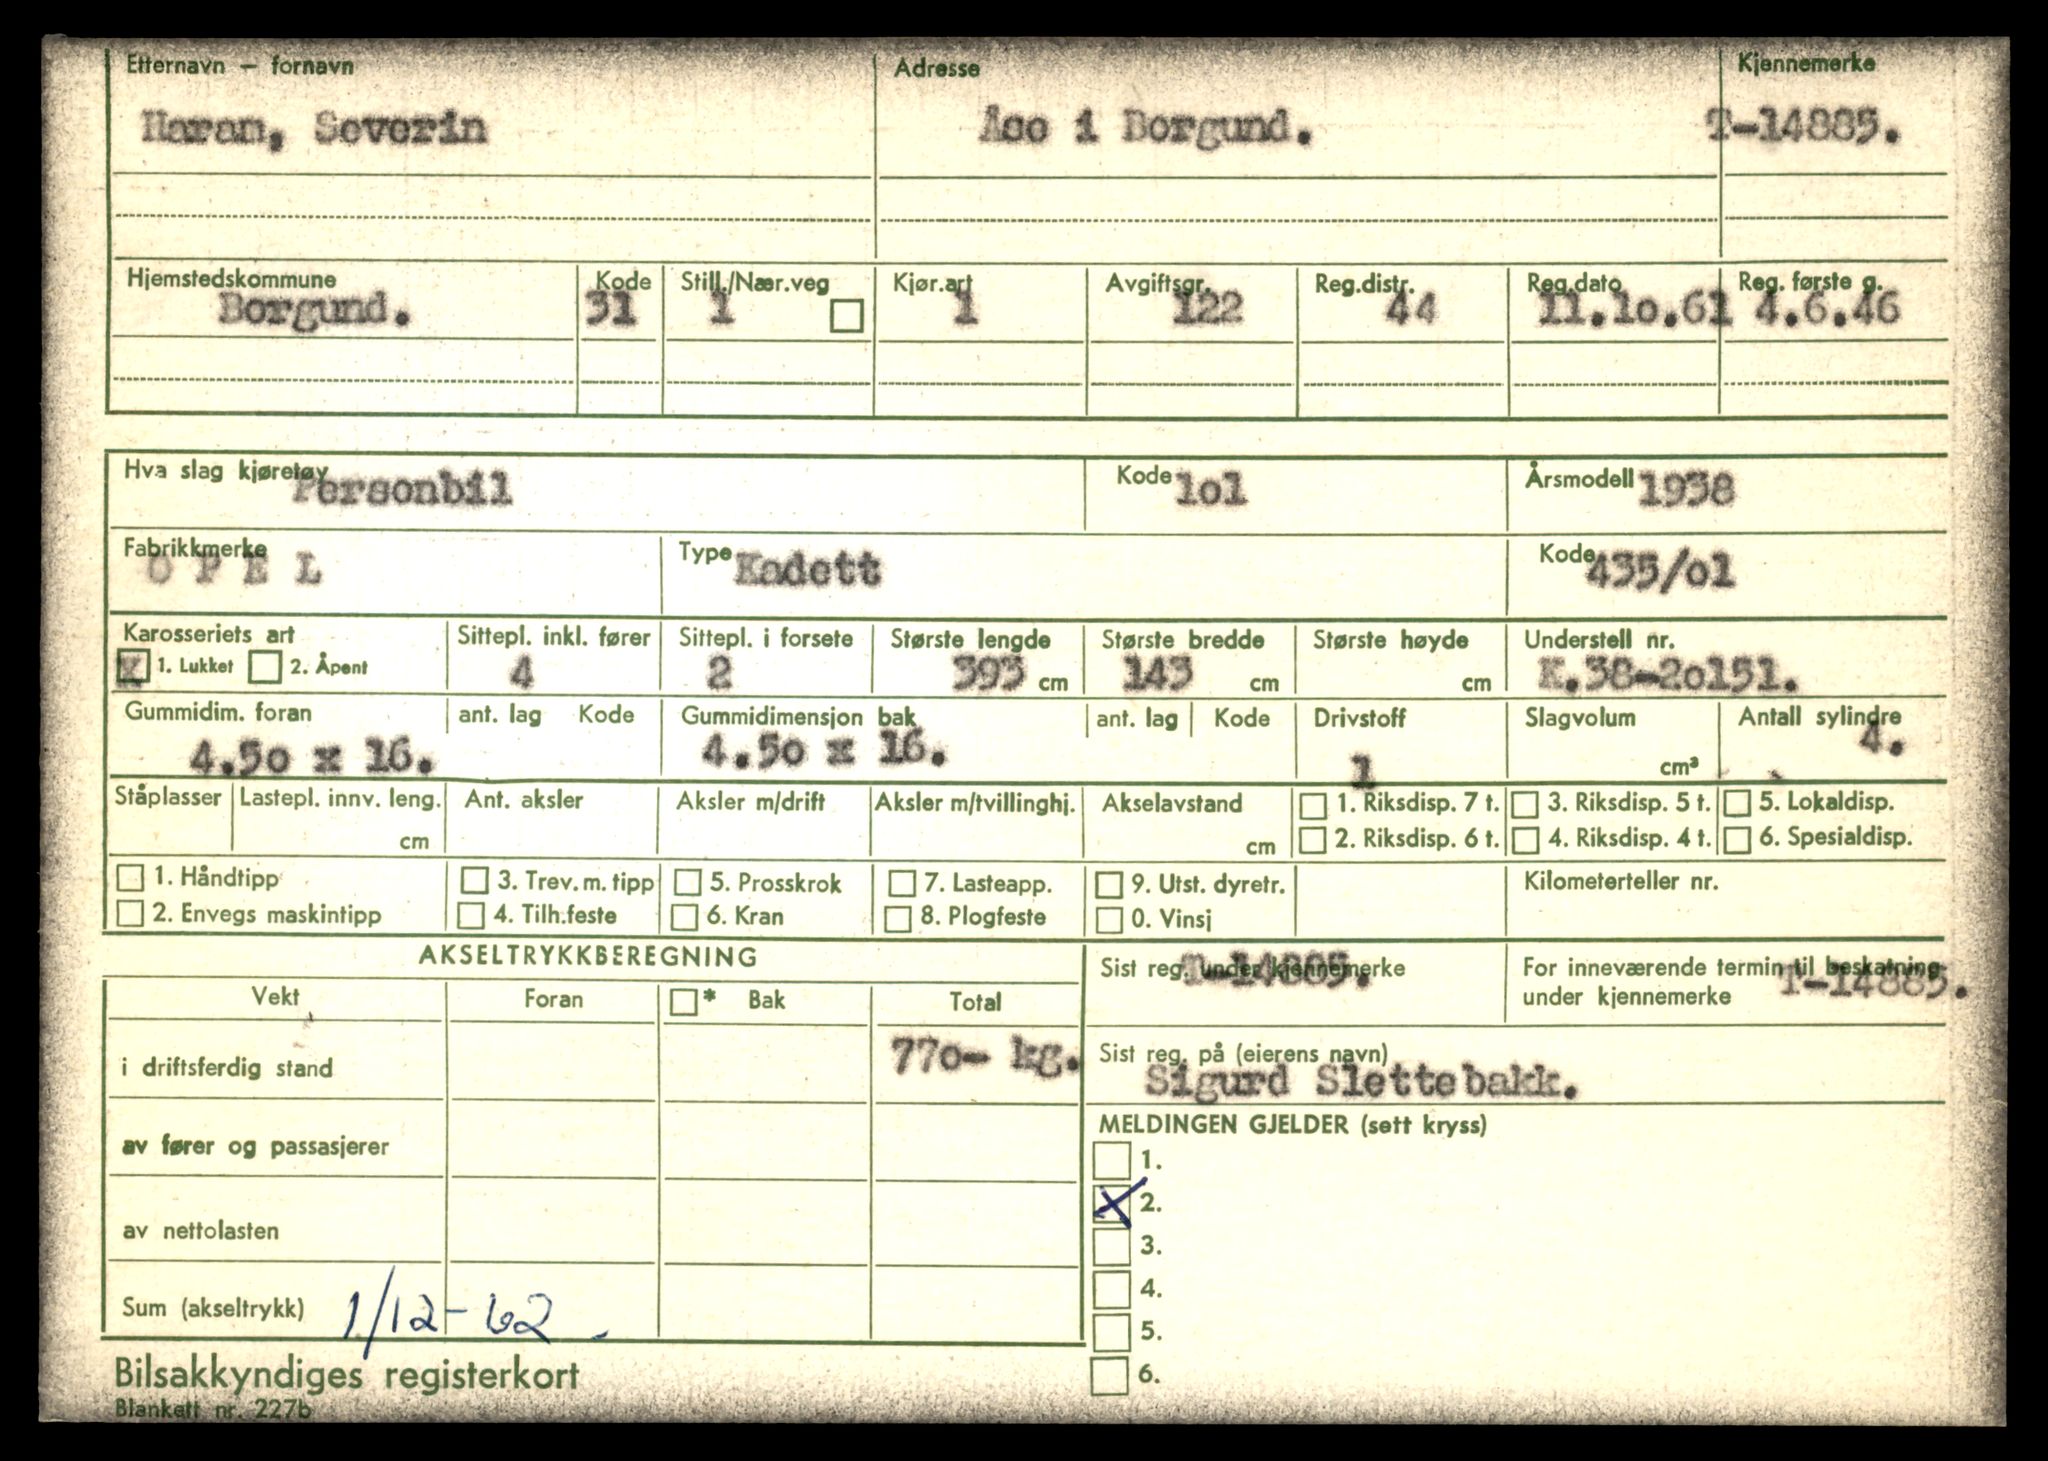 Etternavn – fornavn Adresse Kjennemerke
Haram, Severin Åse i Borgund. T-14885.
Hjemstedskommune Kode Still./Nær.veg Kjør.art Avgiftsgr. Reg.distr. Reg.dato Reg. første g.
Borgund. 31 1 1 122 44 11.10.61 4.6.46
Hva slag kjøretøy Personbil Kode 101 Årsmodell 1938
Fabrikkmerke OPEL Type Kadett Kode 435/01
Karosseriets art Sittepl. inkl. fører Sittepl. i forsete Største lengde Største bredde Største høyde Understell nr.
X 1. Lukket 2. Åpent 4 2 393 cm 143 cm cm K.38-20151.
Gummidim. foran ant. lag Kode Gummidimensjon bak ant. lag Kode Drivstoff Slagvolum Antall sylindre
4.50 x 16. 4.50 x 16. 1 cm³ 4.
Ståplasser Lastepl. innv. leng. Ant. aksler Aksler m/drift Aksler m/tvillinghj. Akselavstand 1. Riksdisp. 7 t. 3. Riksdisp. 5 t. 5. Lokaldisp.
cm cm 2. Riksdisp. 6 t. 4. Riksdisp. 4 t. 6. Spesialdisp.
1. Håndtipp 3. Trev. m. tipp 5. Prosskrok 7. Lasteapp. 9. Utst. dyretr. Kilometerteller nr.
2. Envegs maskintipp 4. Tilh.feste 6. Kran 8. Plogfeste 0. Vinsj
AKSELTRYKKBEREGNING
Sist reg. under kjennemerke T-14885.
For inneværende termin til beskatning
under kjennemerke T-14885.
Vekt Foran * Bak Total
i driftsferdig stand 770- kg.
Sist reg. på (eierens navn)
Sigurd Slettebakk.
av fører og passasjerer
av nettolasten
Sum (akseltrykk) 1/12-62
MELDINGEN GJELDER (sett kryss)
1.
X 2.
3.
4.
5.
6.
Bilsakkyndiges registerkort
Blankett nr. 227b